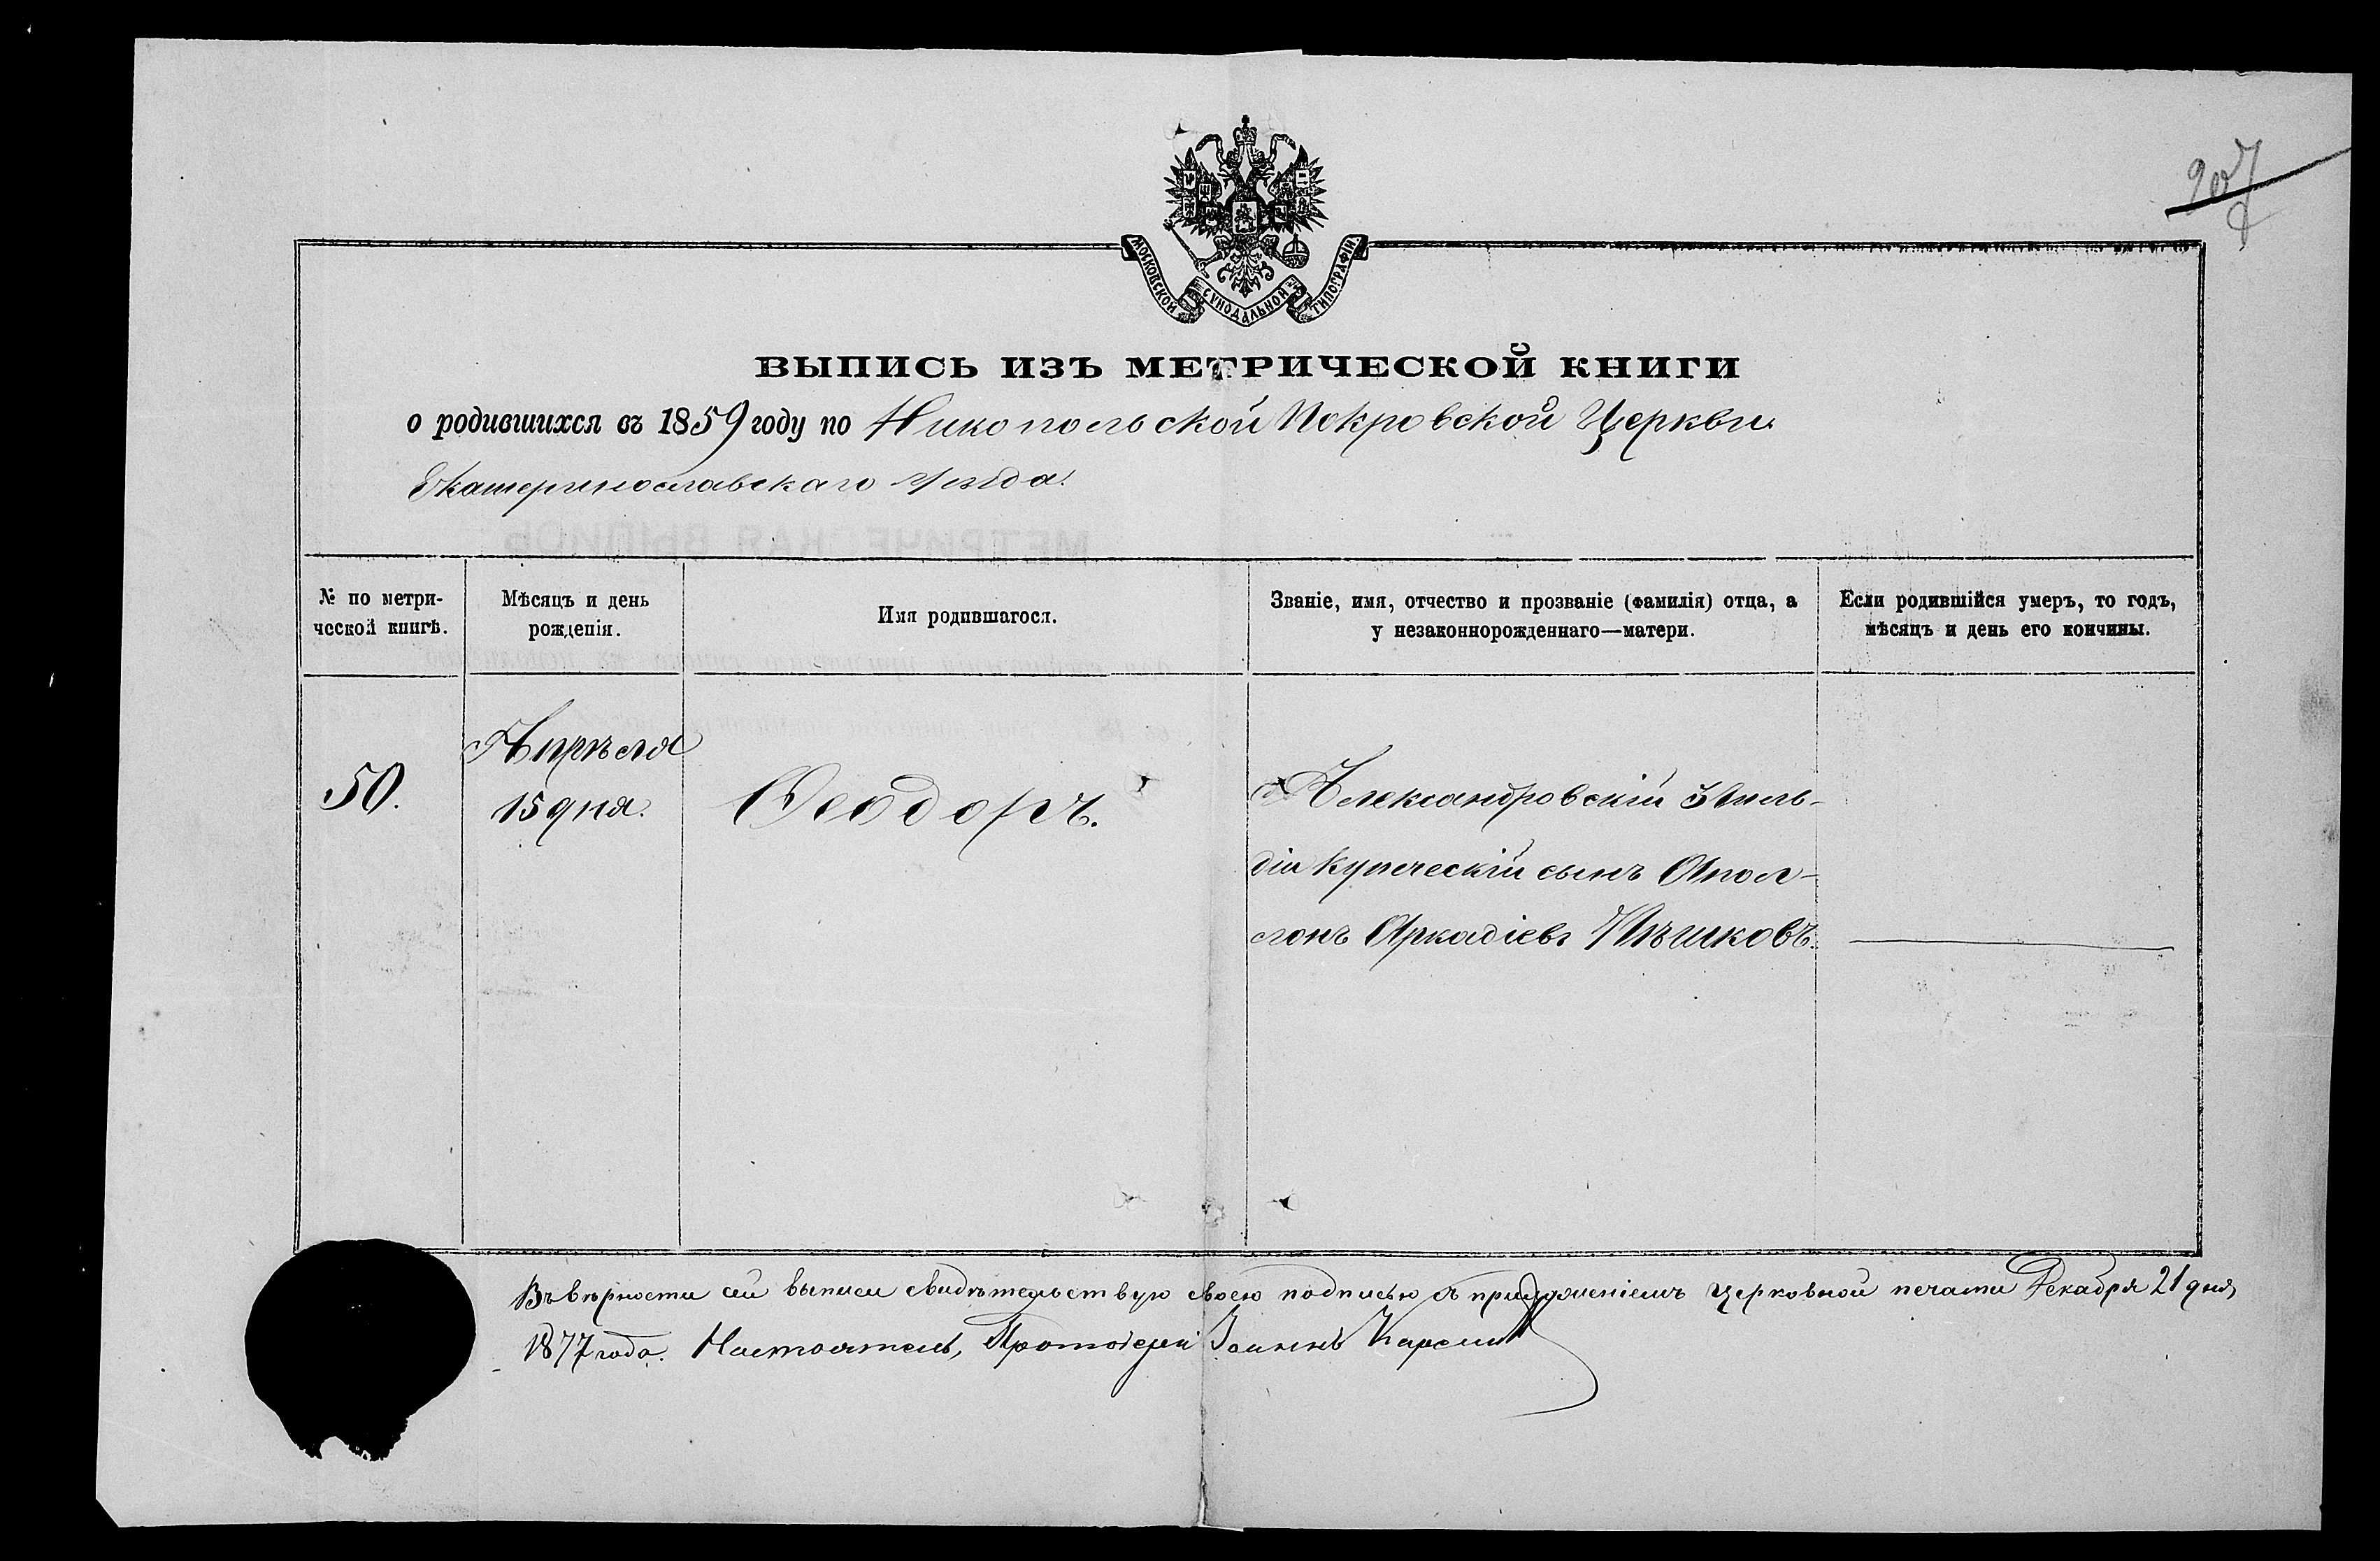 207
МОСКОВСКОЙ СУНОДАЛЬНОЙ ТИПОГРАФІИ
ВЫПИСЬ ИЗЪ МЕТРИЧЕСКОЙ КНИГИ
о родившихся въ 1859 году по Никопольской Покровской Церкви
Екатеринославскаго Уѣзда.
№ по метри-
ческой книгѣ.
Мѣсяцъ и день
рожденія.
Имя родившагося.
Званіе, имя, отчество и прозваніе (фамилія) отца, а
у незаконнорожденнаго—матери.
Если родившійся умеръ, то годъ,
мѣсяцъ и день его кончины.
50.
Апрѣля
15 дня.
Ѳеодоръ.
Александровскій 3 Гиль-
діи Купеческій сынъ Апол-
лонъ Аркадіевъ Пѣшковъ.
Въ вѣрности сей выписи свидѣтельствую своею подписью съ приложеніемъ церковной печати Декабря 21 дня,
1877 года. Настоятель, Протоіерей Іоаннъ